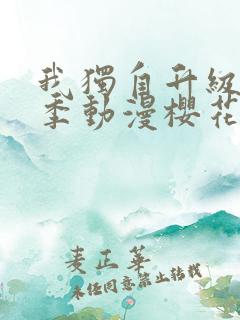 我獨自升級
季動漫櫻花
麦正華
未任同意禁止转载